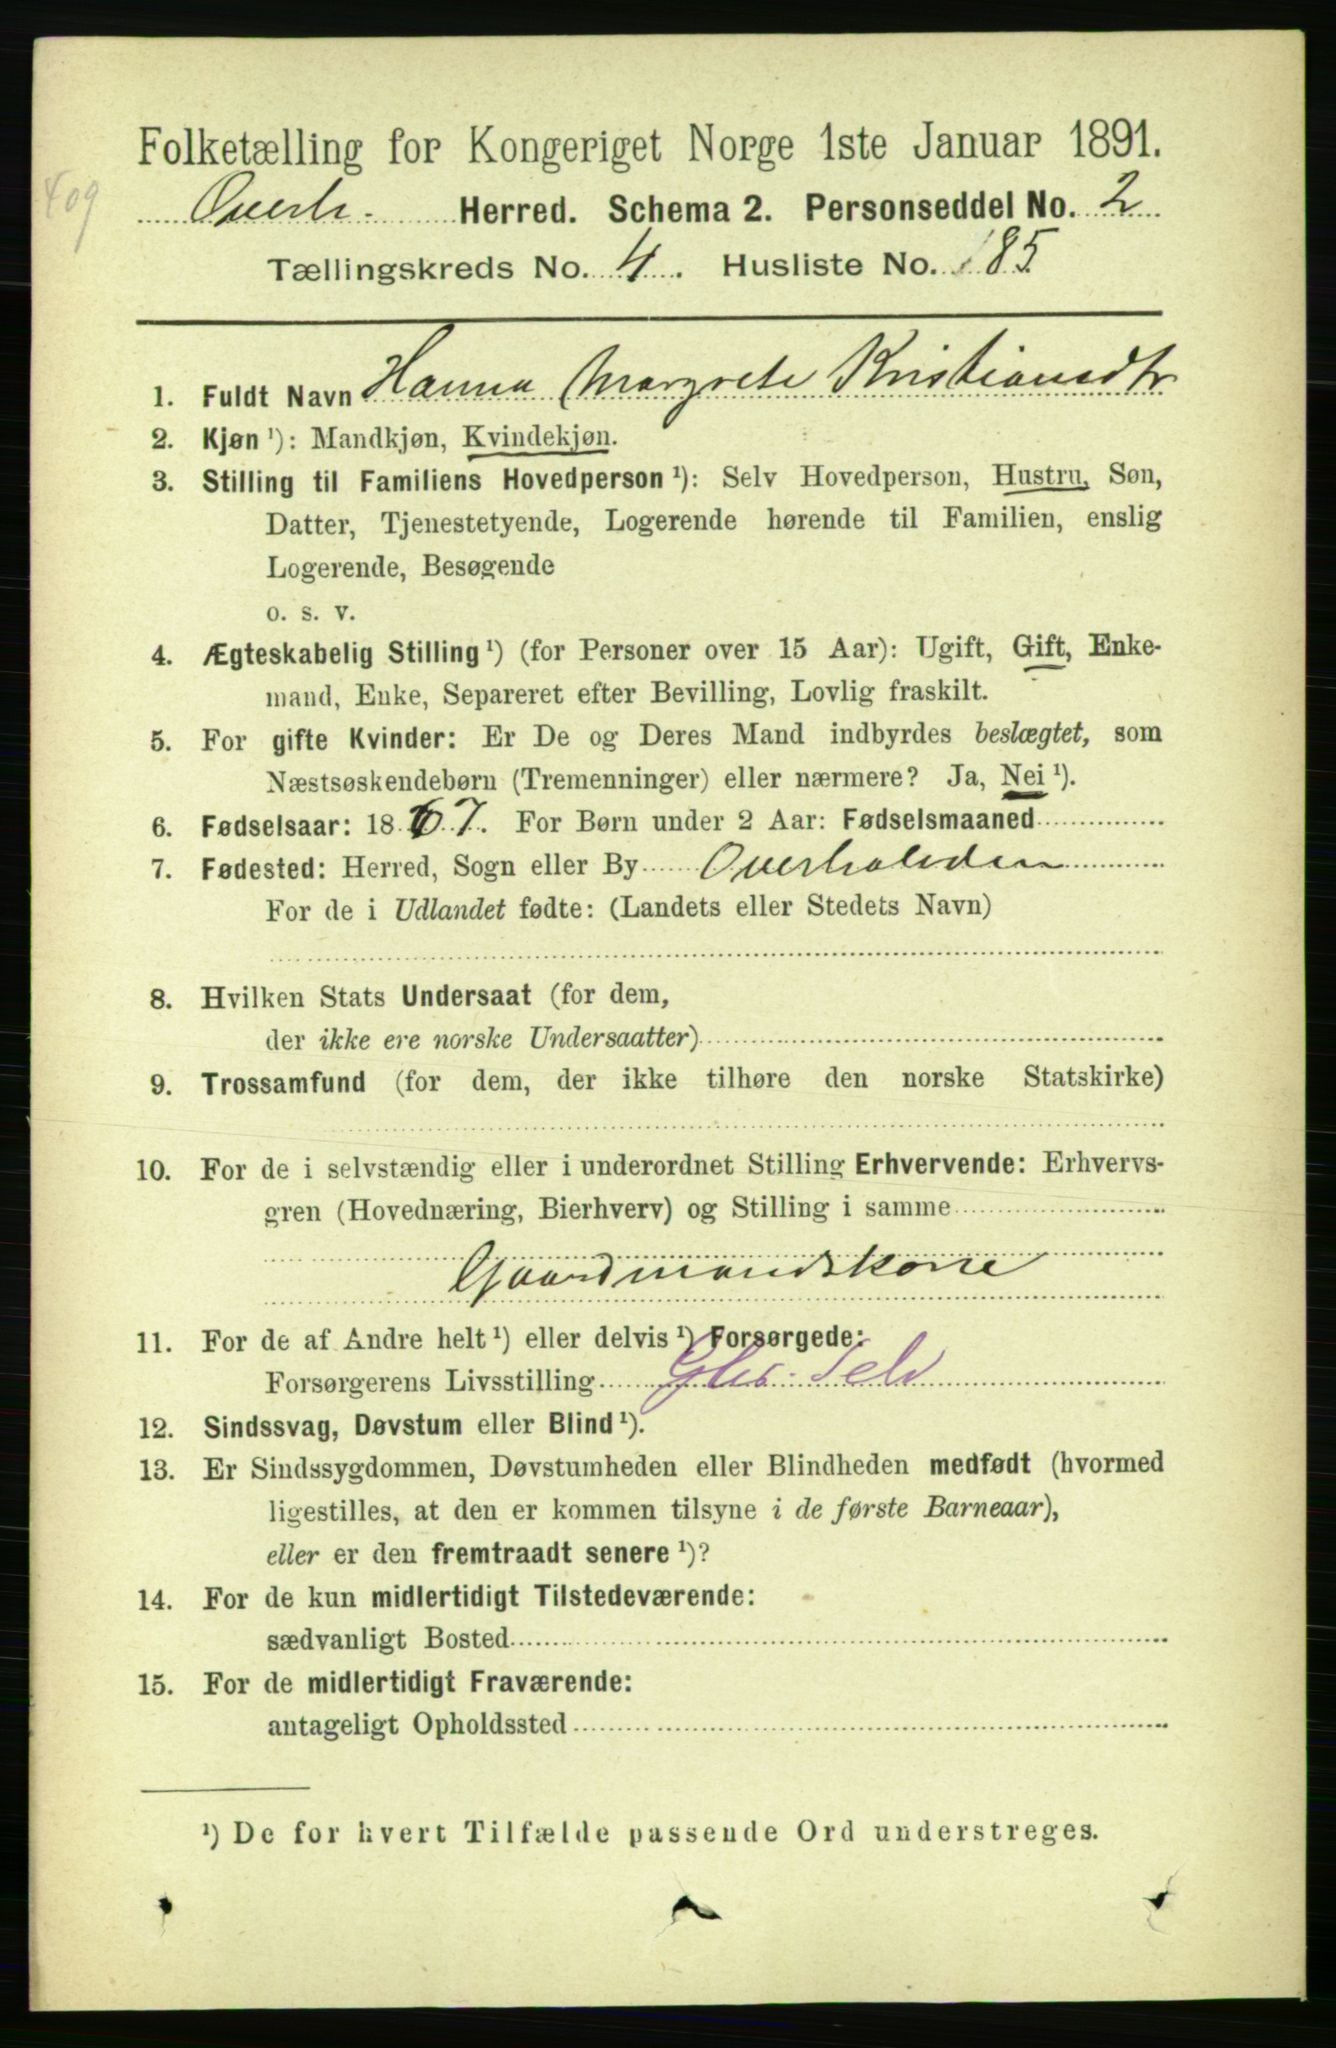 Folketælling for Kongeriget Norge 1ste Januar 1891.
409
Overh. Herred. Schema 2. Personseddel No. 2
Tællingskreds No. 4. Husliste No. 185
1. Fuldt Navn Hanna Margrete Kristiansdtr
2. Kjøn ¹): Mandkjøn, Kvindekjøn.
3. Stilling til Familiens Hovedperson ¹): Selv Hovedperson, Hustru, Søn,
Datter, Tjenestetyende, Logerende hørende til Familien, enslig
Logerende, Besøgende
o. s. v.
4. Ægteskabelig Stilling ¹) (for Personer over 15 Aar): Ugift, Gift, Enke-
mand, Enke, Separeret efter Bevilling, Lovlig fraskilt.
5. For gifte Kvinder: Er De og Deres Mand indbyrdes beslægtet, som
Næstsøskendebørn (Tremenninger) eller nærmere? Ja, Nei ¹).
6. Fødselsaar: 1867. For Børn under 2 Aar: Fødselsmaaned
7. Fødested: Herred, Sogn eller By Overhalden
For de i Udlandet fødte: (Landets eller Stedets Navn)
8. Hvilken Stats Undersaat (for dem,
der ikke ere norske Undersaatter)
9. Trossamfund (for dem, der ikke tilhøre den norske Statskirke)
10. For de i selvstændig eller i underordnet Stilling Erhvervende: Erhvervs-
gren (Hovednæring, Bierhverv) og Stilling i samme
Gaardmandskone
11. For de af Andre helt ¹) eller delvis ¹) Forsørgede:
Forsørgerens Livsstilling Gbr. Selv
12. Sindssvag, Døvstum eller Blind ¹).
13. Er Sindssygdommen, Døvstumheden eller Blindheden medfødt (hvormed
ligestilles, at den er kommen tilsyne i de første Barneaar),
eller er den fremtraadt senere ¹)?
14. For de kun midlertidigt Tilstedeværende:
sædvanligt Bosted
15. For de midlertidigt Fraværende:
antageligt Opholdssted
¹) De for hvert Tilfælde passende Ord understreges.